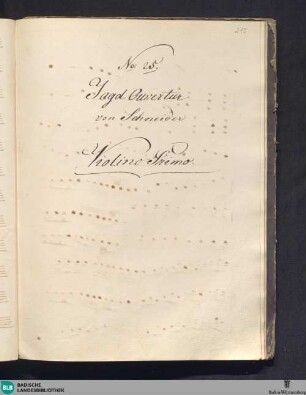 No 25.
Jagd Ouvertür
von Schneider
Violino Primo.
BLB BADISCHE
LANDESBIBLIOTHEK
Baden-Württemberg